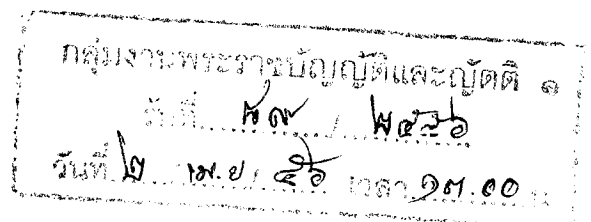 กลุ่มงานพระราชบัญญัติและญัตติ ๑
รับที่ ๕๙ / ๒๕๕๖
วันที่ ๒ เม.ย. ๕๖ เวลา ๑๓.๐๐ น.